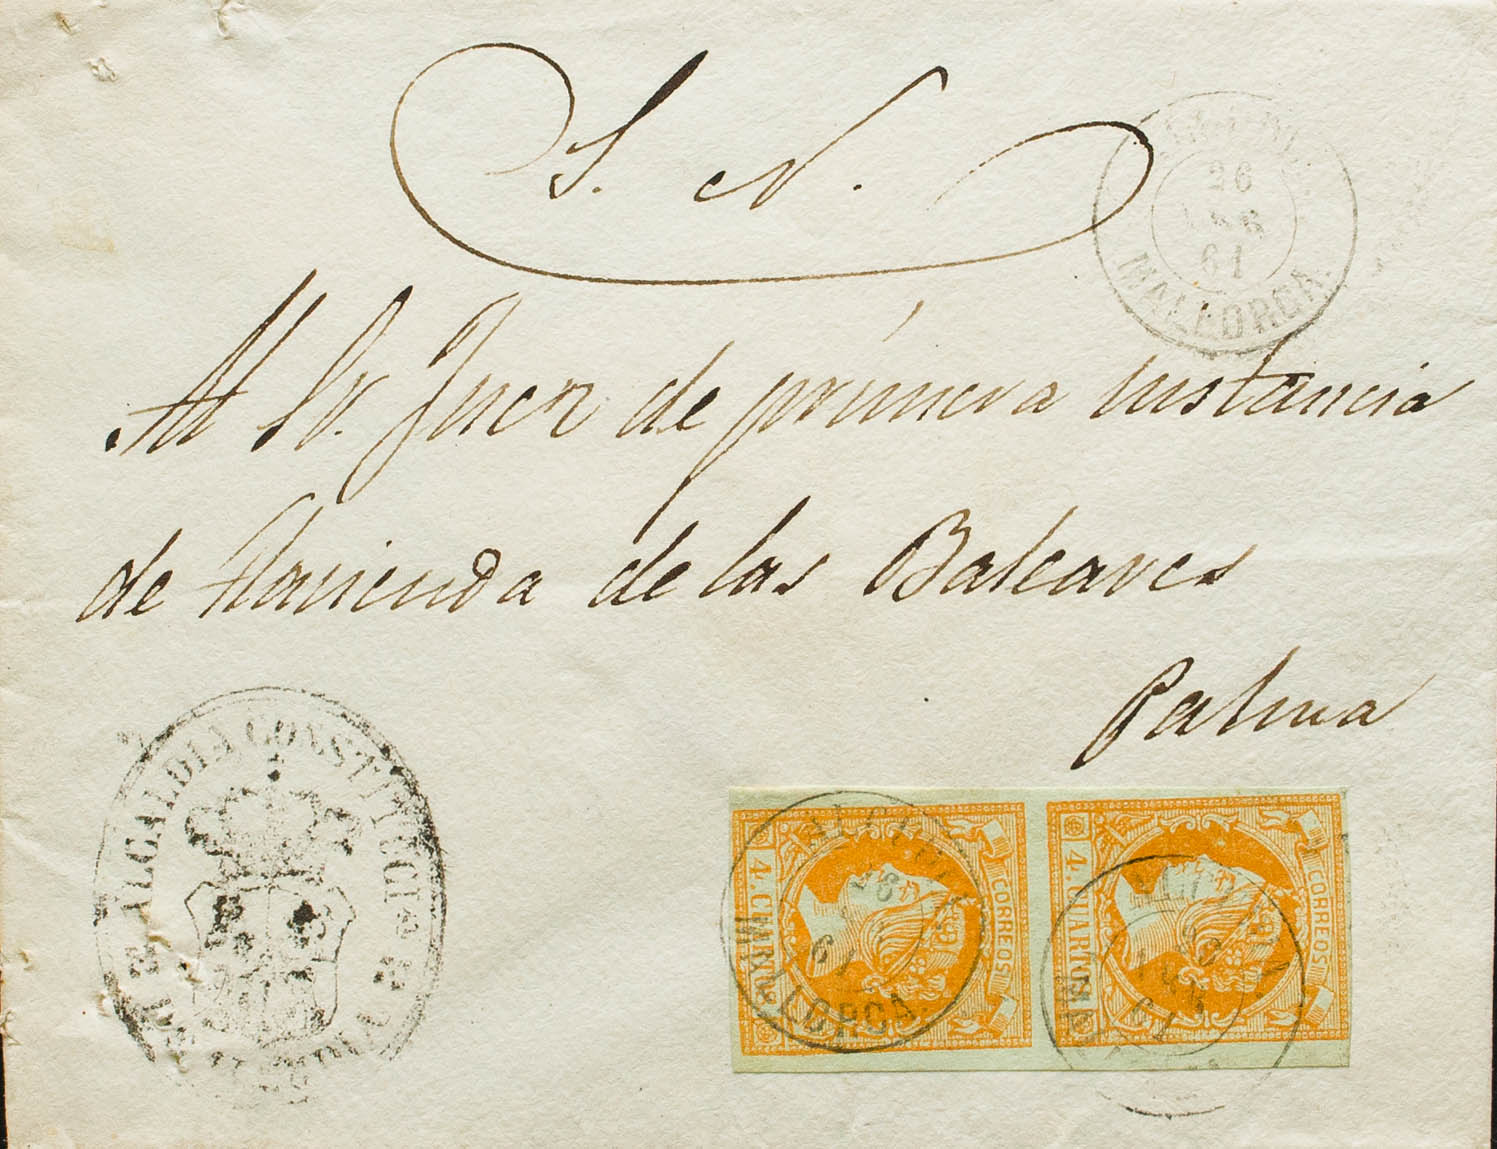 S. N.
26
61
MALLORCA.
Al Sr. Juez de primera instancia
de Hacienda de las Baleares
Palma
ALCALDIA CONSTITUCI
4. CUARTOS
CORREOS
4. CUARTOS
CORREOS
26
61
MALLORCA
61